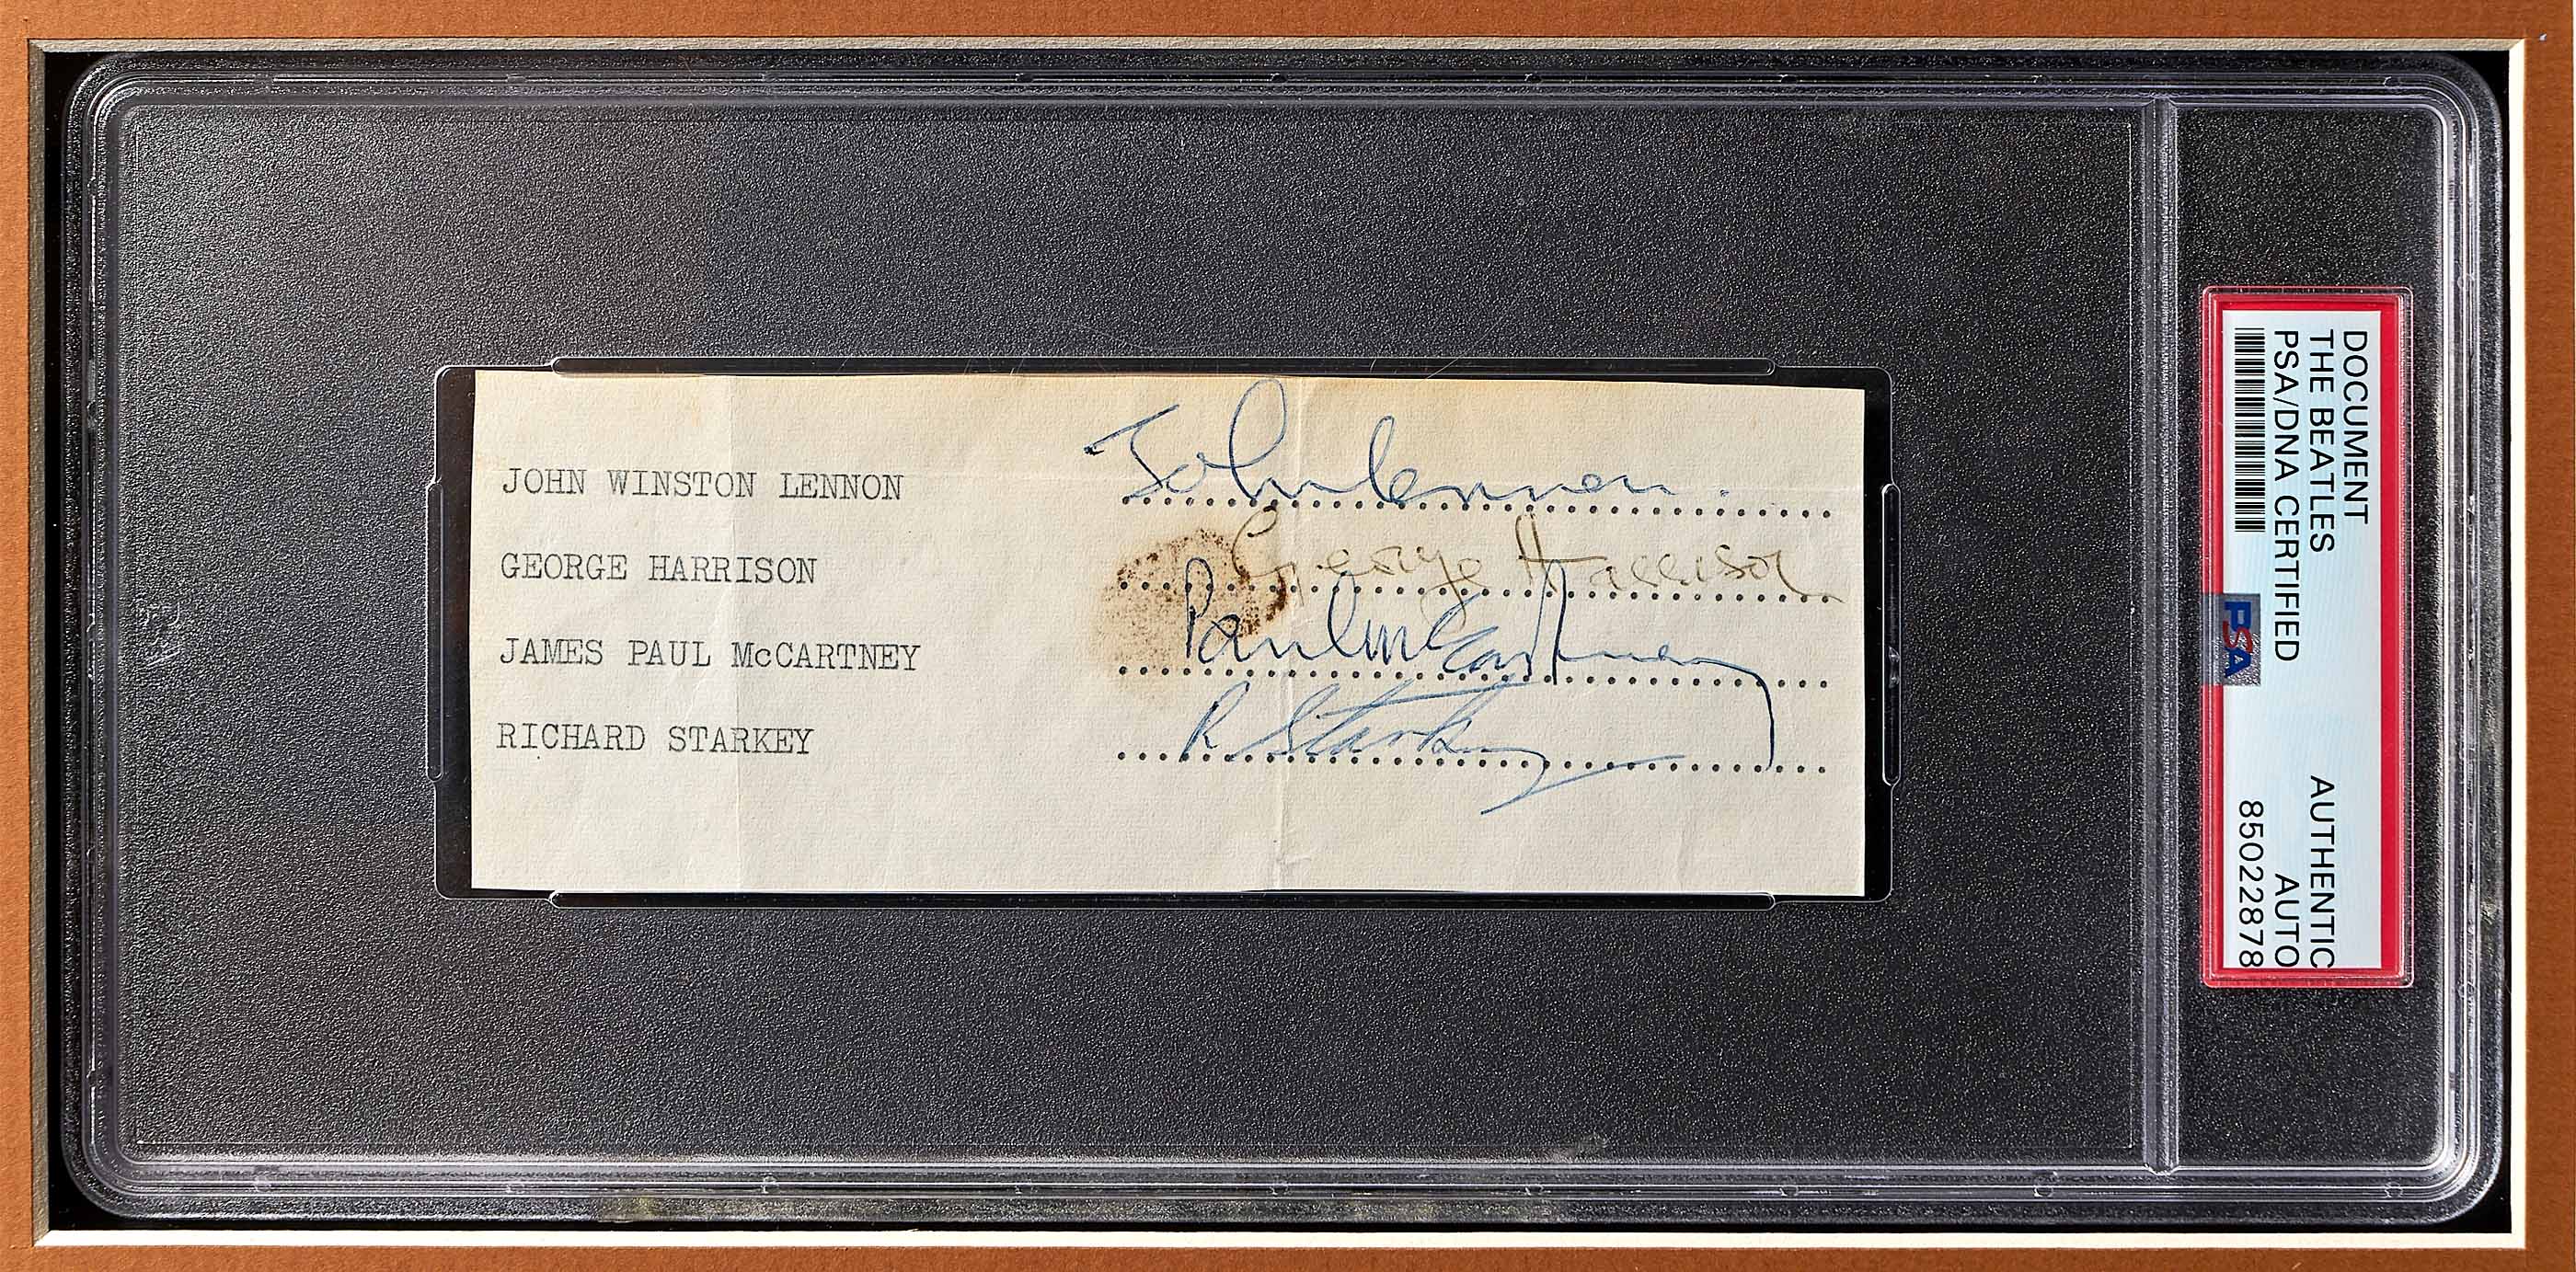 JOHN WINSTON LENNON John Lennon.
GEORGE HARRISON George Harrison
JAMES PAUL McCARTNEY Paul McCartney
RICHARD STARKEY R Starkey
DOCUMENT
THE BEATLES AUTHENTIC
PSA/DNA CERTIFIED AUTO
85022878
PSA